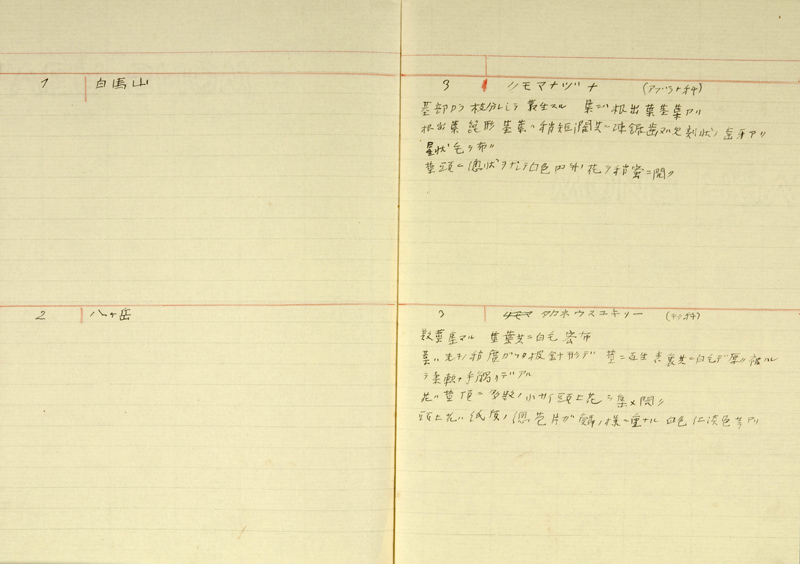 1 白馬山
2 八ヶ岳
3 シモマナヅナ (アブラナ科)
基部カラ枝分シテ叢生スル 葉ハ根出葉茎葉アリ
根出葉 箆形 茎葉ハ稍短濶共ニ 鋸歯 又ハ欠刻状ノ歯牙アリ
星状毛ヲ布ク
茎頭ニ 状ヲナシテ白色四弁花ヲ稍密ニ開ク
3 タカネウスユキソー (キク科)
数茎 茎葉共ニ白毛密布
葉ハ 披針形デ 茎ニ互生 表裏共ニ白毛デ厚ク被ハレ
テ柔軟ナ手觸リデアル
花ハ茎頂ニ多数ノ小サイ頭上花ヲ集メ開ク
頭上花ハ紙質ノ 苞片ガ 様ニ重ナル 白色 淡色 アリ